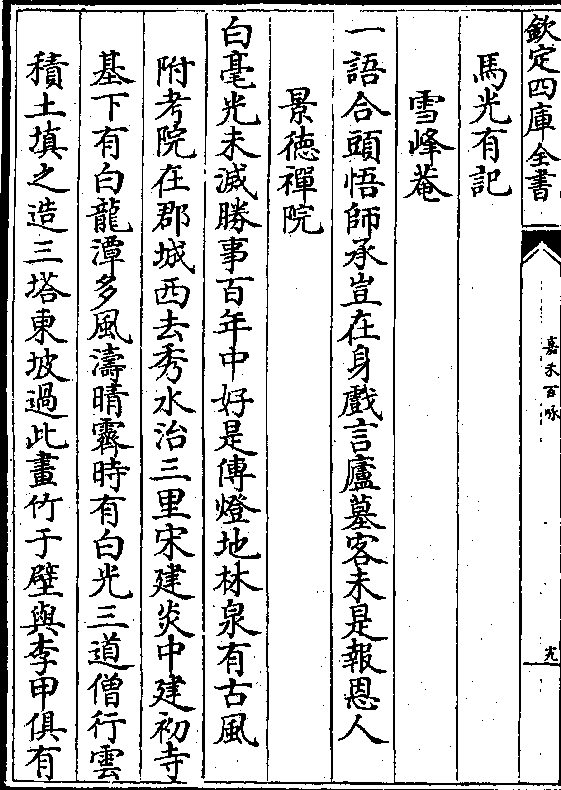 欽定四庫全書
嘉禾百咏
馬光有記
雪峰菴
一語合頭悟師承豈在身戲言廬墓客未是報恩人
景徳禪院
白毫光未滅勝事百年中好是傳燈地林泉有古風
附考院在郡城西去秀水治三里宋建炎中建初寺
基下有白龍潭多風濤晴霽時有白光三道僧行雲
積土填之造三塔東坡過此畫竹于壁與李甲俱有